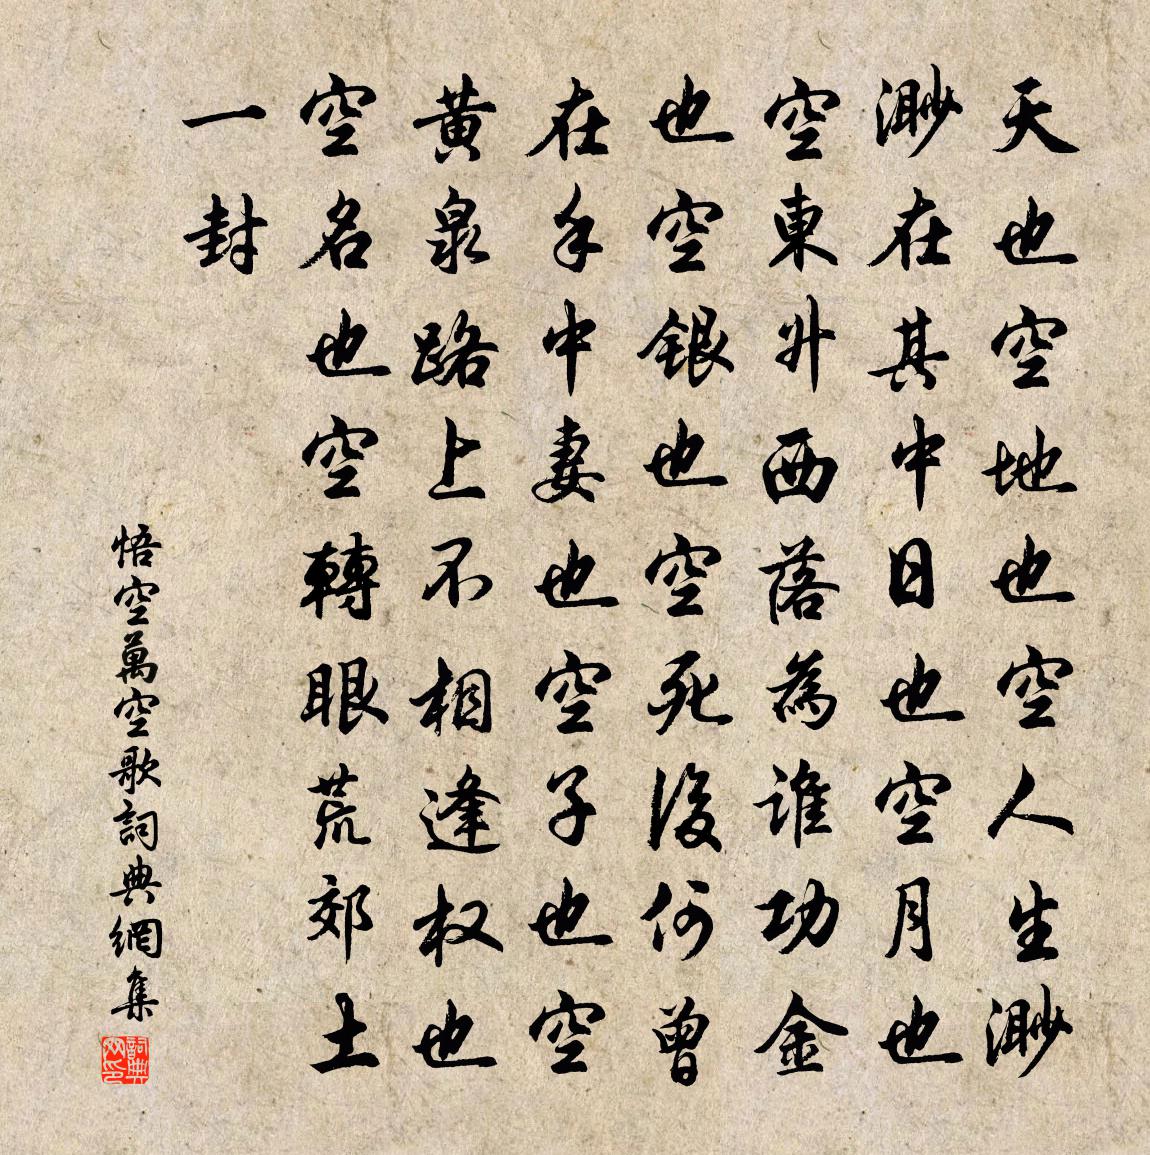 天也空地也空人生渺
渺在其中日也空月也
空東升西落為誰功金
也空銀也空死後何曾
在手中妻也空子也空
黃泉路上不相逢权也
空名也空轉眼荒郊土
一封
悟空萬空歌詞典網集
詞典
网印